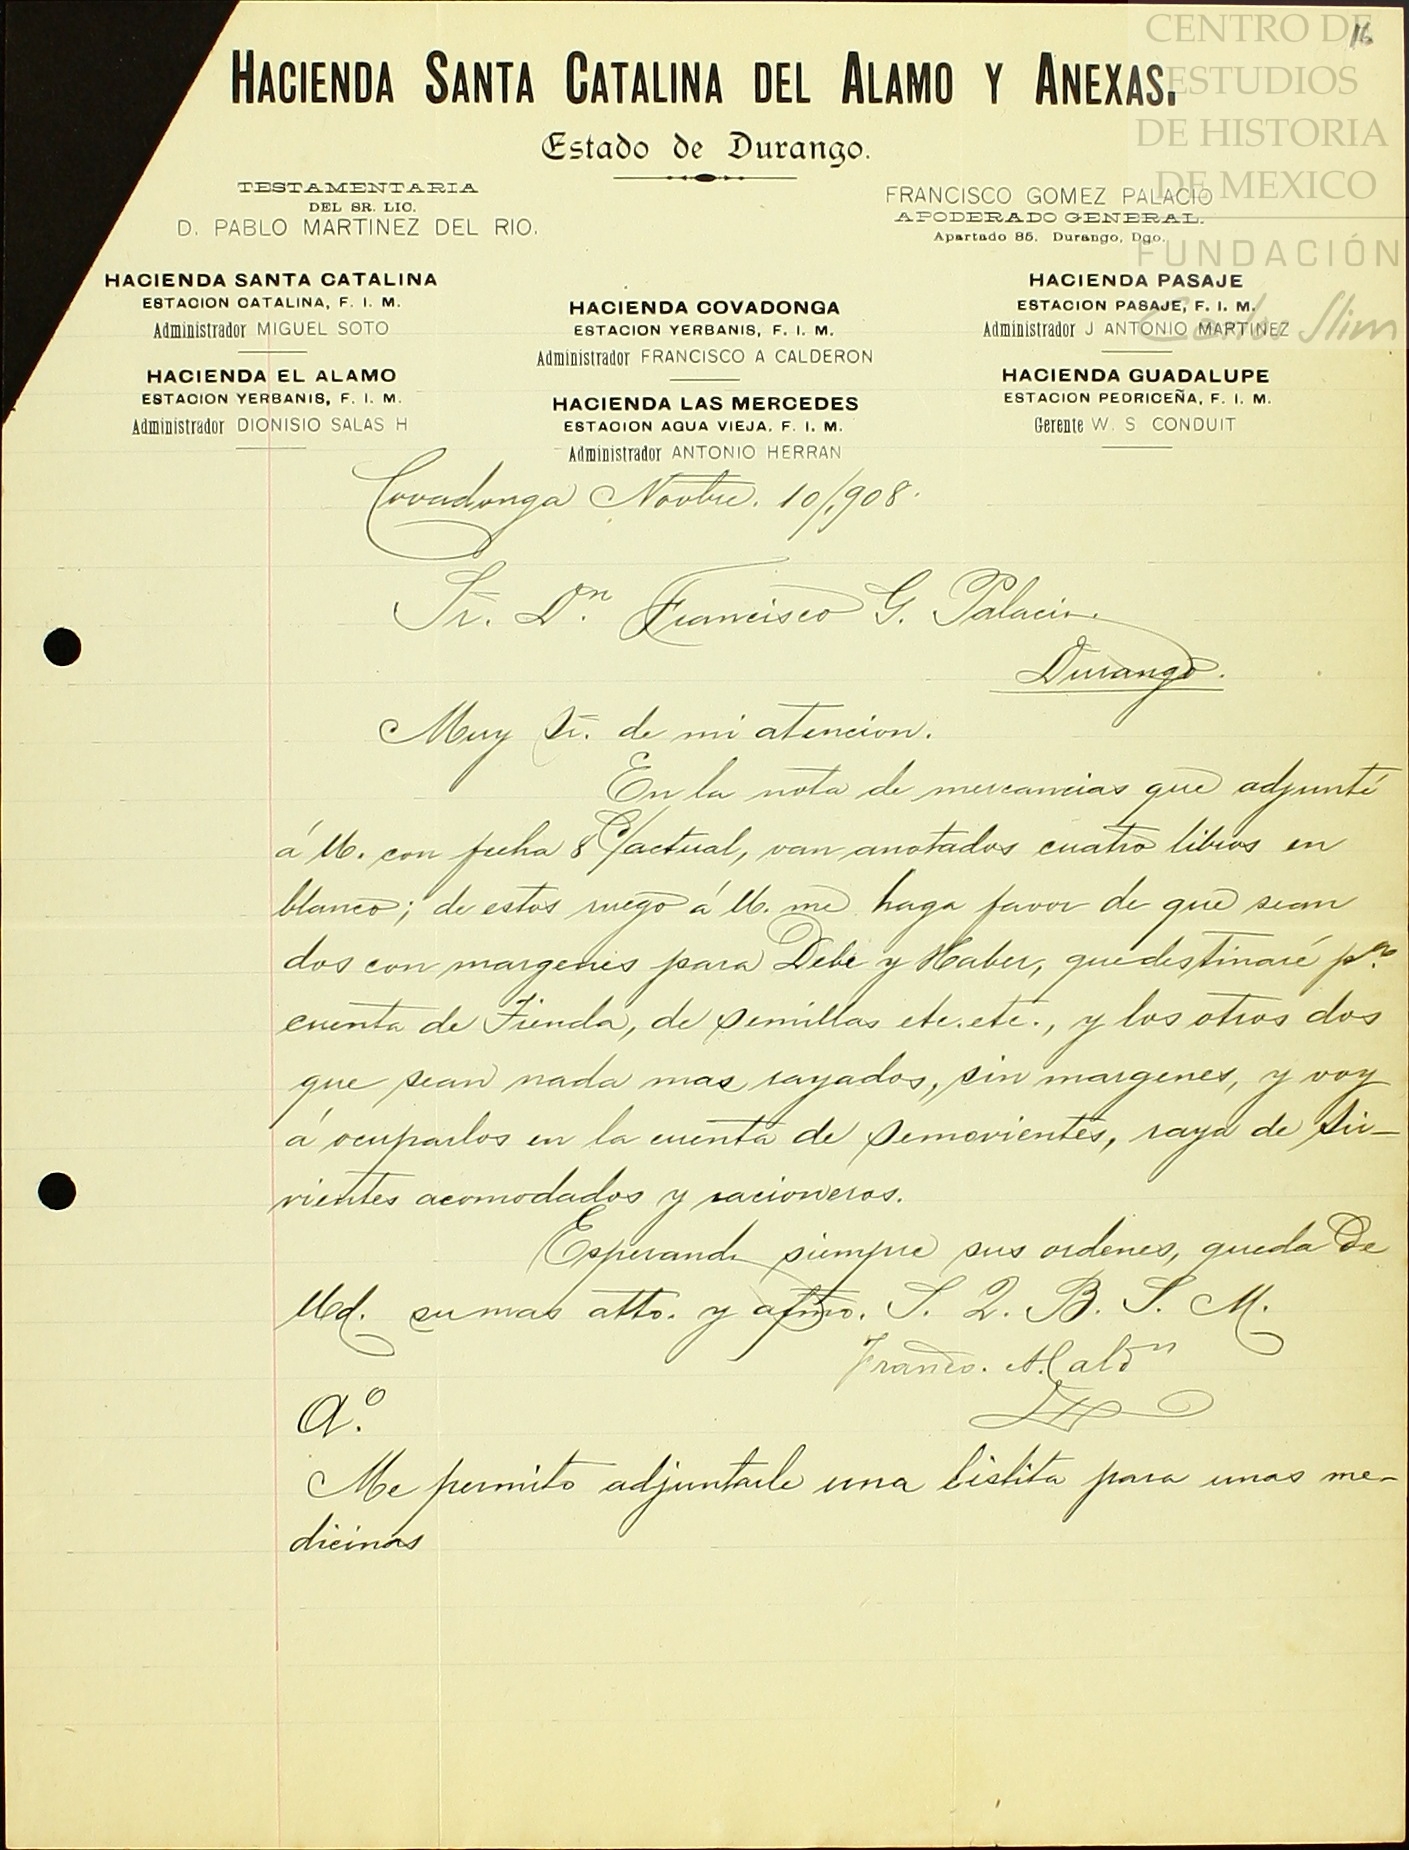 CENTRO DE
ESTUDIOS
DE HISTORIA
DE MEXICO
FUNDACIÓN
Carlos Slim
16
HACIENDA SANTA CATALINA DEL ALAMO Y ANEXAS.
Estado de Durango.
TESTAMENTARIA
DEL SR. LIC.
D. PABLO MARTINEZ DEL RIO.
FRANCISCO GOMEZ PALACIO
APODERADO GENERAL.
Apartado 85. Durango, Dgo.
HACIENDA SANTA CATALINA
ESTACION CATALINA, F. I. M.
Administrador MIGUEL SOTO
HACIENDA EL ALAMO
ESTACION YERBANIS, F. I. M.
Administrador DIONISIO SALAS H
HACIENDA COVADONGA
ESTACION YERBANIS, F. I. M.
Administrador FRANCISCO A CALDERON
HACIENDA LAS MERCEDES
ESTACION AGUA VIEJA, F. I. M.
Administrador ANTONIO HERRAN
HACIENDA PASAJE
ESTACION PASAJE, F. I. M.
Administrador J ANTONIO MARTINEZ
HACIENDA GUADALUPE
ESTACION PEDRICEÑA, F. I. M.
Gerente W. S CONDUIT
Covadonga Novbre. 10/908.
Sr. Dn. Francisco G. Palacio.
Durango.
Muy Sr. de mi atencion.
En la nota de mercancias que adjunté
á U. con fecha 8 del actual, van anotados cuatro libros en
blanco; de estos ruego á U. me haga favor de que sean
dos con margenes para Debe y Haber, que destinaré pra.
cuenta de Tienda, de Semillas etc. etc., y los otros dos
que sean nada mas rayados, sin margenes, y voy
á ocuparlos en la cuenta de Semovientes, raya de Sir-
vientes acomodados y racioneros.
Esperando siempre sus ordenes, queda De
Ud. su mas atto. y afmo. S. Q. B. S. M.
Franco. A. Caldn
A.º
Me permito adjuntarle una listita para unas me-
dicinas